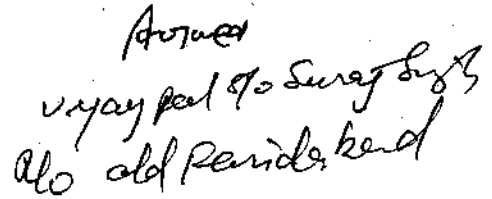 vijay pal S/o Suraj Singh
R/o old Faridabad